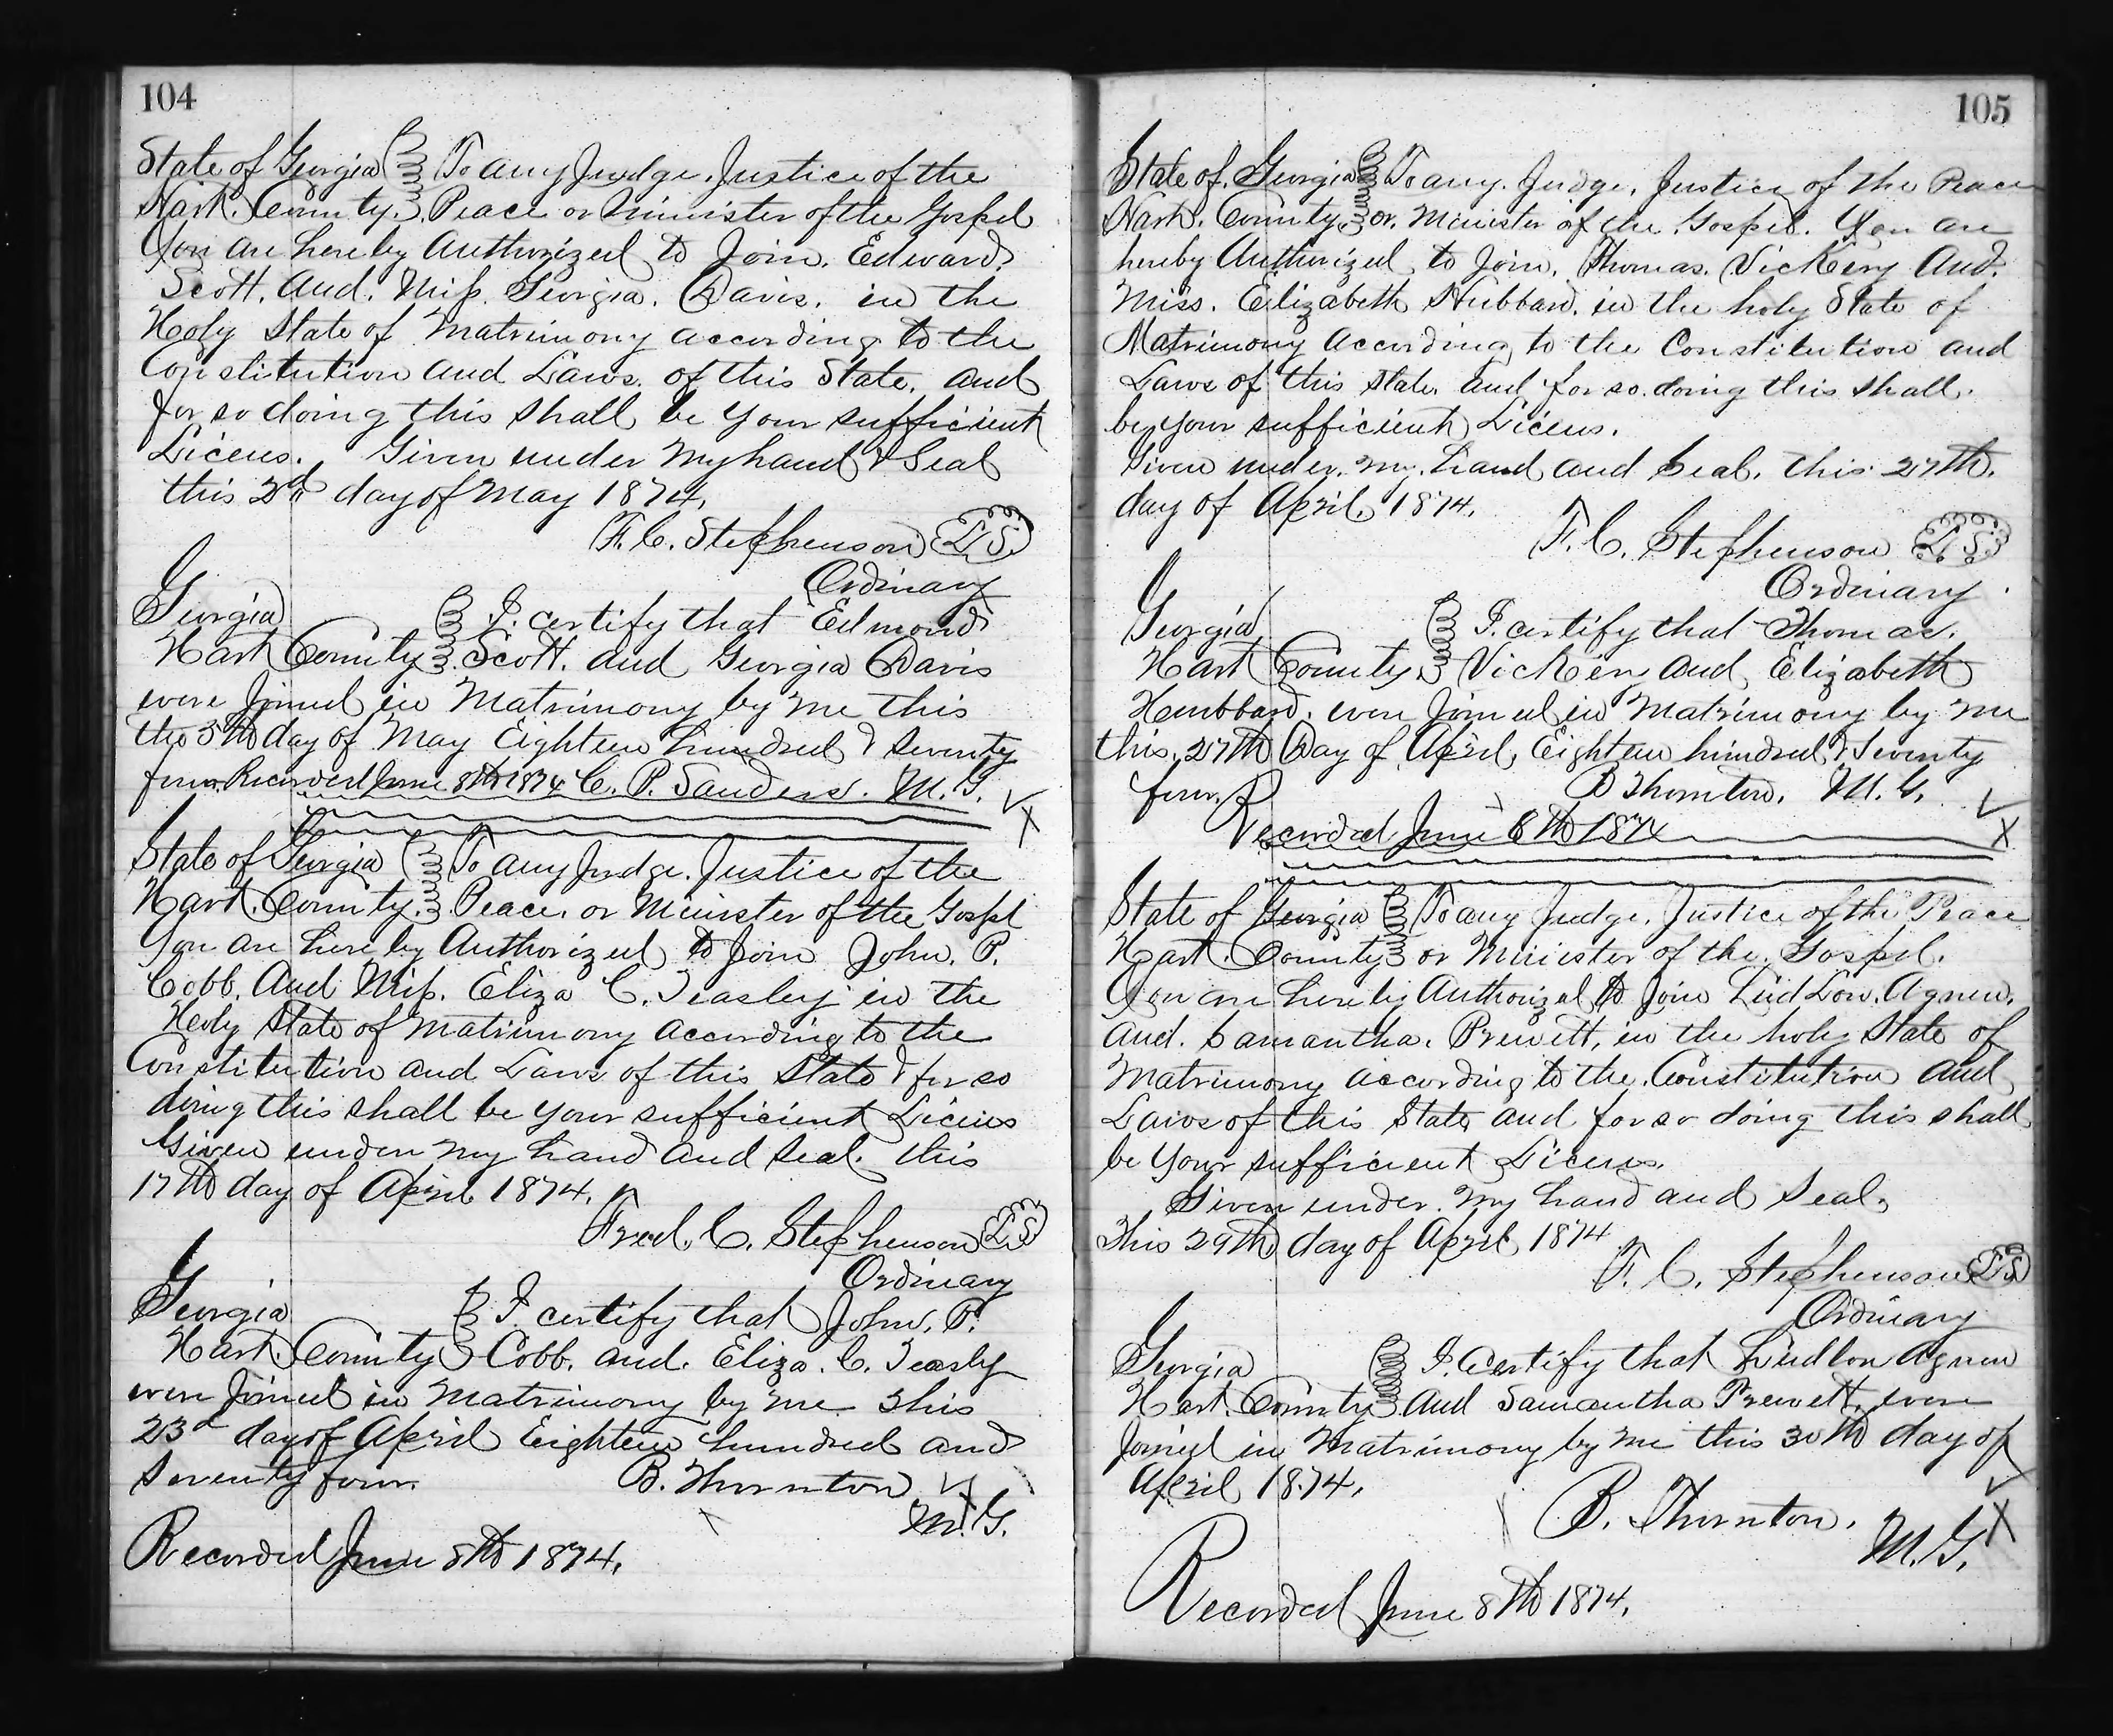 104
State of Georgia To any Judge. Justice of the
Hart. County. Peace or Minister of the Gospel
You are hereby Authorized to Join. Edward.
Scott. And. Miss. Georgia. Davis. in the
Holy State of Matrimony according to the
Constitution and Laws. of this State. and
for so doing this shall be your sufficient
Licens. Given under my hand & Seal
this 2d day of May 1874.
F. C. Stephenson L.S.
Ordinary
Georgia I. certify that Edmond
Hart County Scott. and Georgia Davis
were Joined in Matrimony by me this
the 5th day of May Eighteen hundred & Seventy
four. Recorded June 8th 1874 C. P. Sanders. M. G.
State of Georgia To any Judge. Justice of the
Hart. County. Peace. or Minister of the Gospel
You are hereby Authorized to Join John. P.
Cobb. And Miss. Eliza C. Teasley in the
Holy State of Matrimony according to the
Constitution and Laws of this State & for so
doing this shall be your sufficient Licens
Given under my hand and Seal. this
17th day of April 1874.
Fred. C. Stephenson L.S.
Ordinary
Georgia I. certify that John. P.
Hart. County Cobb. and. Eliza. C. Teasly
were Joined in Matrimony by me this
23d day of April Eighteen hundred and
Seventy four. B. Thornton
M. G.
Recorded June 8th 1874.
105
State of. Georgia To any. Judge. Justice of the Peace
Hart. County. or. Minister of the. Gospel. You are
hereby Authorized to Join. Thomas. Vickery And.
Miss. Elizabeth Hubbard. in the holy State of
Matrimony According to the Constitution and
Laws of this State. and for so. doing this shall.
be your sufficient Licens.
Given under. my. hand and Seal. this 27th.
day of April. 1874.
F. C. Stephenson L.S.
Ordinary.
Georgia I. certify that Thomas.
Hart County. Vickery and Elizabeth
Heubbard. were Joined in Matrimony by me
this. 27th Day of April. Eighteen hundred & Seventy
four. B Thornton. M. G.
Recorded June 8th 1874
State of Georgia To any Judge. Justice of the Peace
Hart. County or Minister of the. Gospel.
You are hereby Authorized to Join Lud Low. Agnew.
and. Samantha. Prewett, in the holy State of
Matrimony according to the. Constitution and
Laws of this State and for so doing this shall
be Your sufficient Licens.
Given under. my hand and Seal.
This 29th day of April 1874
F. C. Stephenson L.S.
Ordinary
Georgia I. Certify that Ludlow Agnew
Hart. County and Samantha Prewett. were
Joined in Matrimony by me this 30th day of
April 1874.
B. Thornton.
M. G.
Recorded June 8th 1874.